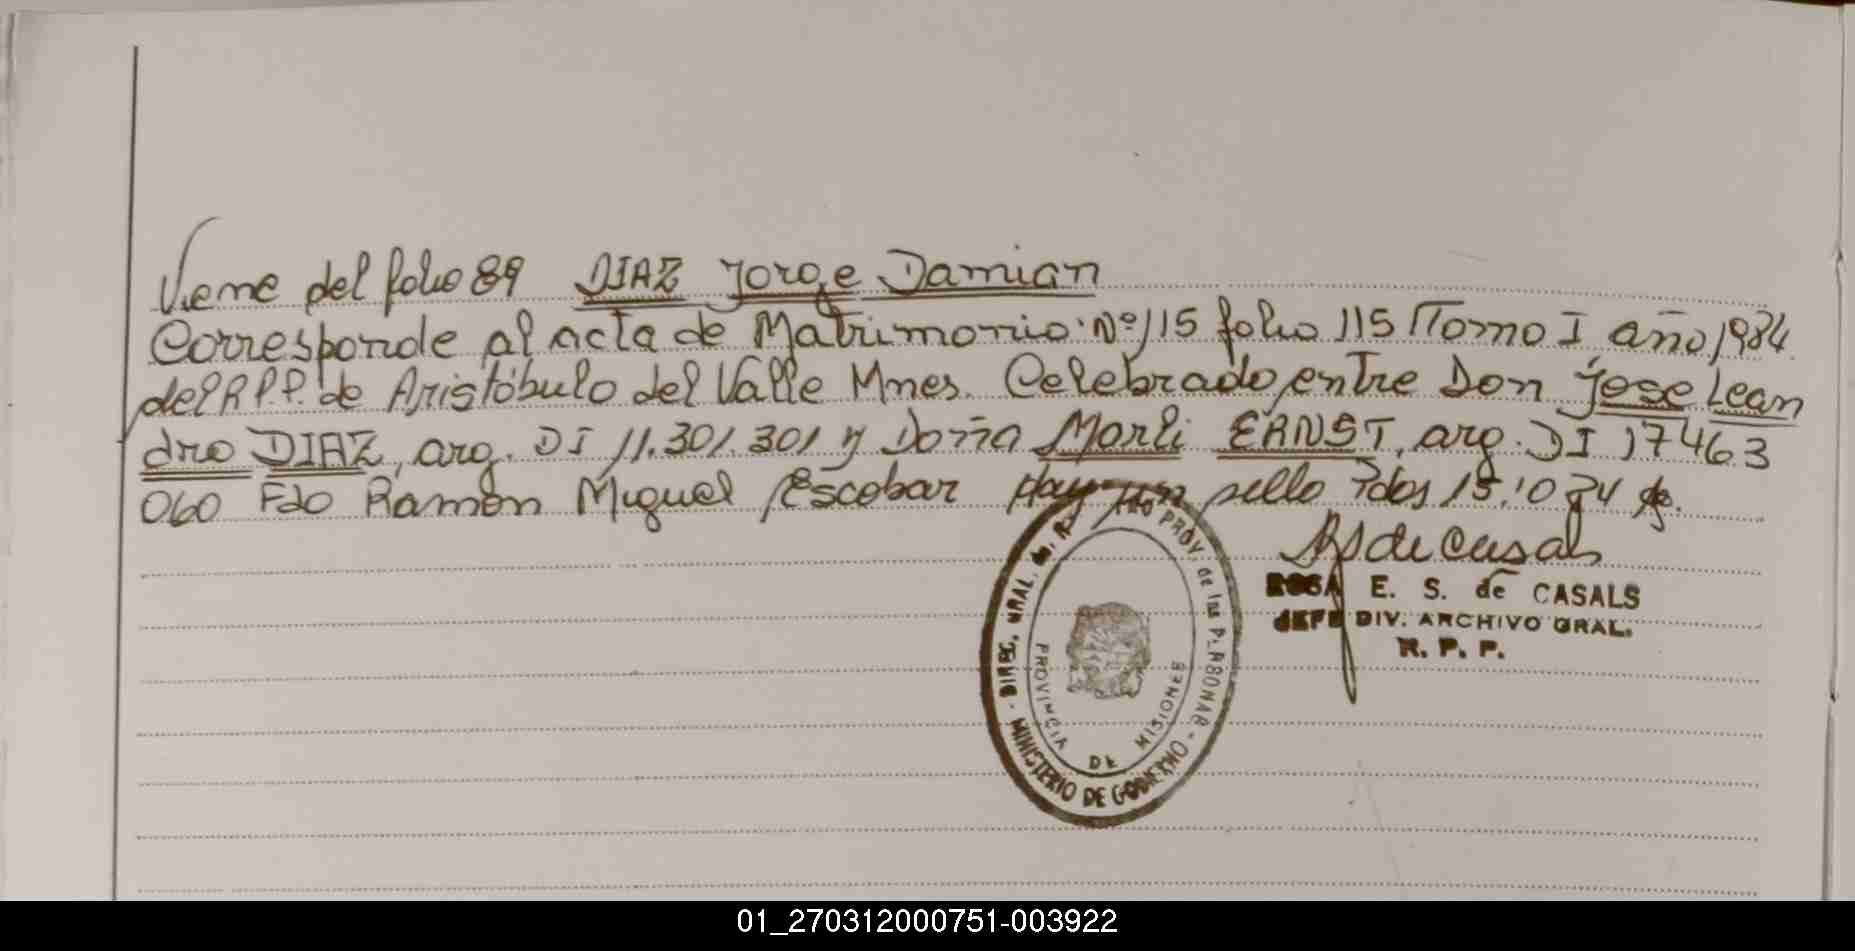 Viene del folio 89 DIAZ Jorge Damian
Corresponde al acta de Matrimonio Nº 115 folio 115 Tomo I año 1984
del R.P.P. de Aristóbulo del Valle Mnes. Celebrado entre Don Jose Lean
dro DIAZ, arg. DI 11.301.301 y Doña Marli ERNST, arg. DI 17463
060 Fdo Ramon Miguel Escobar Hay un sello Pdos 15.10.84
RS de Casals
ROSA E. S. de CASALS
JEFE DIV. ARCHIVO GRAL.
R. P. P.
DIREC. GRAL. PROV. de las PERSONAS - MINISTERIO DE GOBIERNO -
PROVINCIA DE MISIONES
01_270312000751-003922